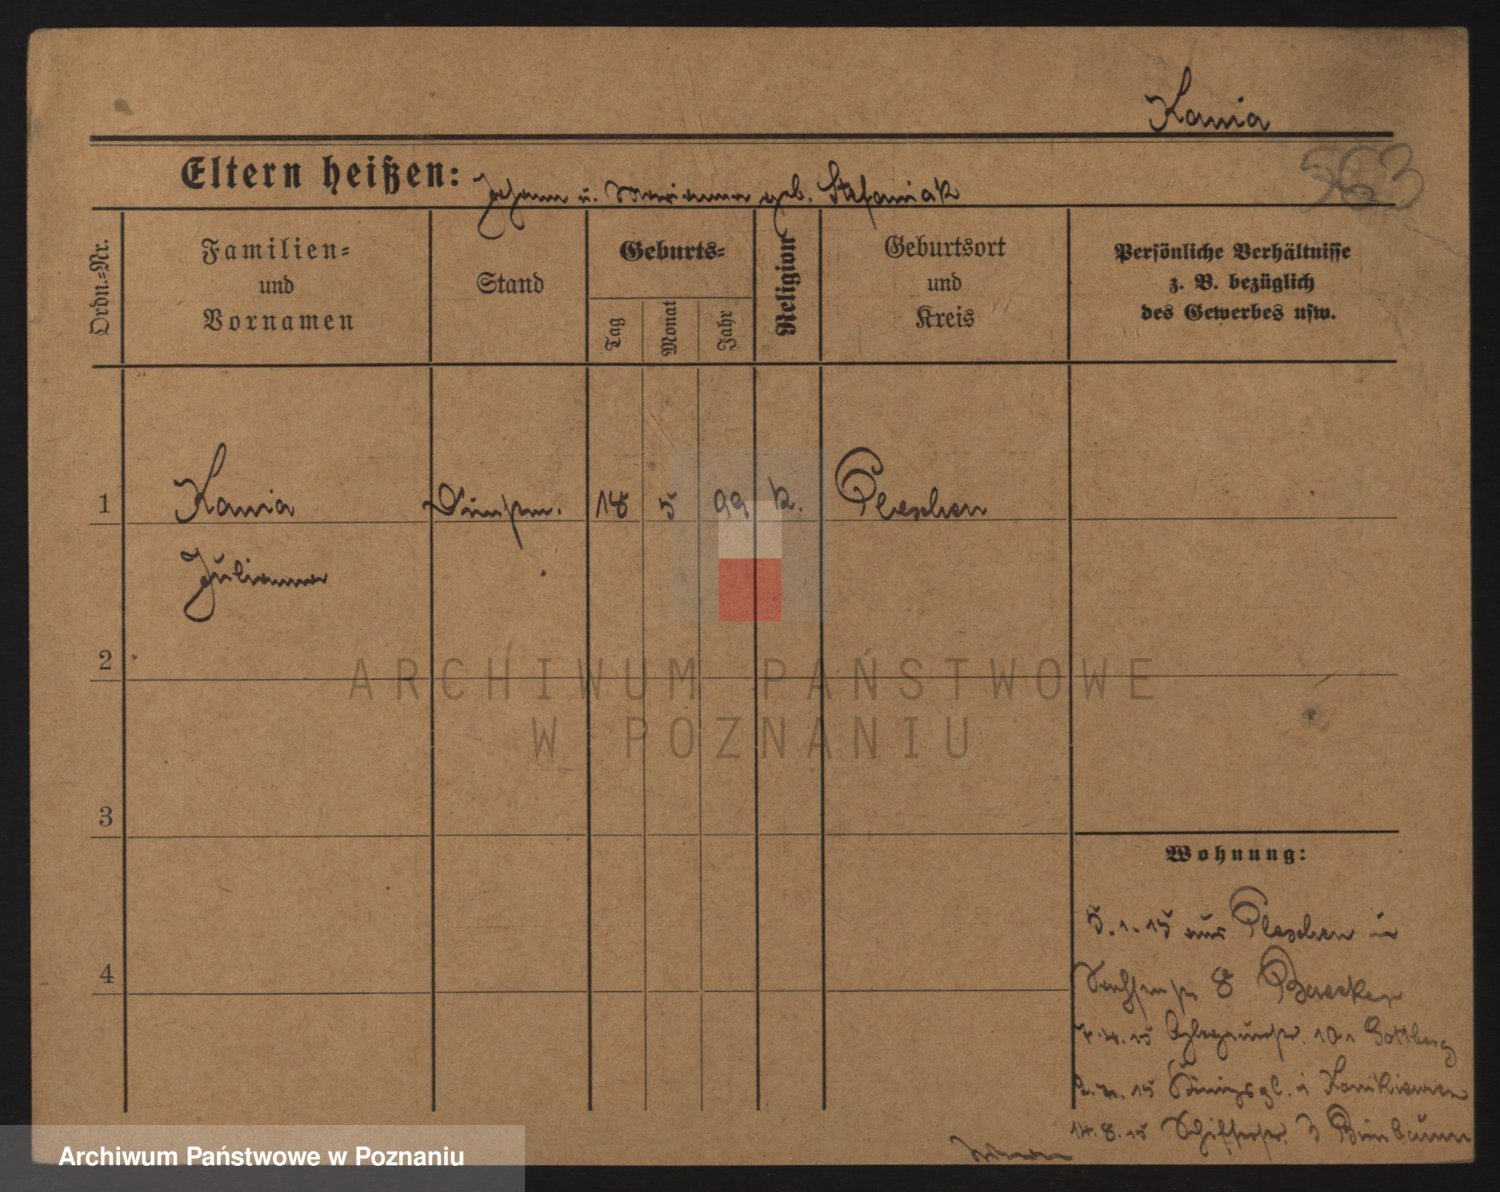 Kania
563
Eltern heißen: Johann u. Marianna geb. Stefaniak
Ordn.-Nr.
Familien-
und
Vornamen
Stand
Geburts-
Tag
Monat
Jahr
Religion
Geburtsort
und
Kreis
Persönliche Verhältnisse
z. B. bezüglich
des Gewerbes usw.
1 Kania 18 5 99 k. Pleschen
Julianna
2
3
4
ARCHIWUM PAŃSTWOWE
W POZNANIU
Wohnung:
5.1.15 aus Pleschen in
8 Baecker
7.4.15 101 Gottberg
15 Königspl.
14.8.15 Schifferstr. 3 Birnbaum
Archiwum Państwowe w Poznaniu